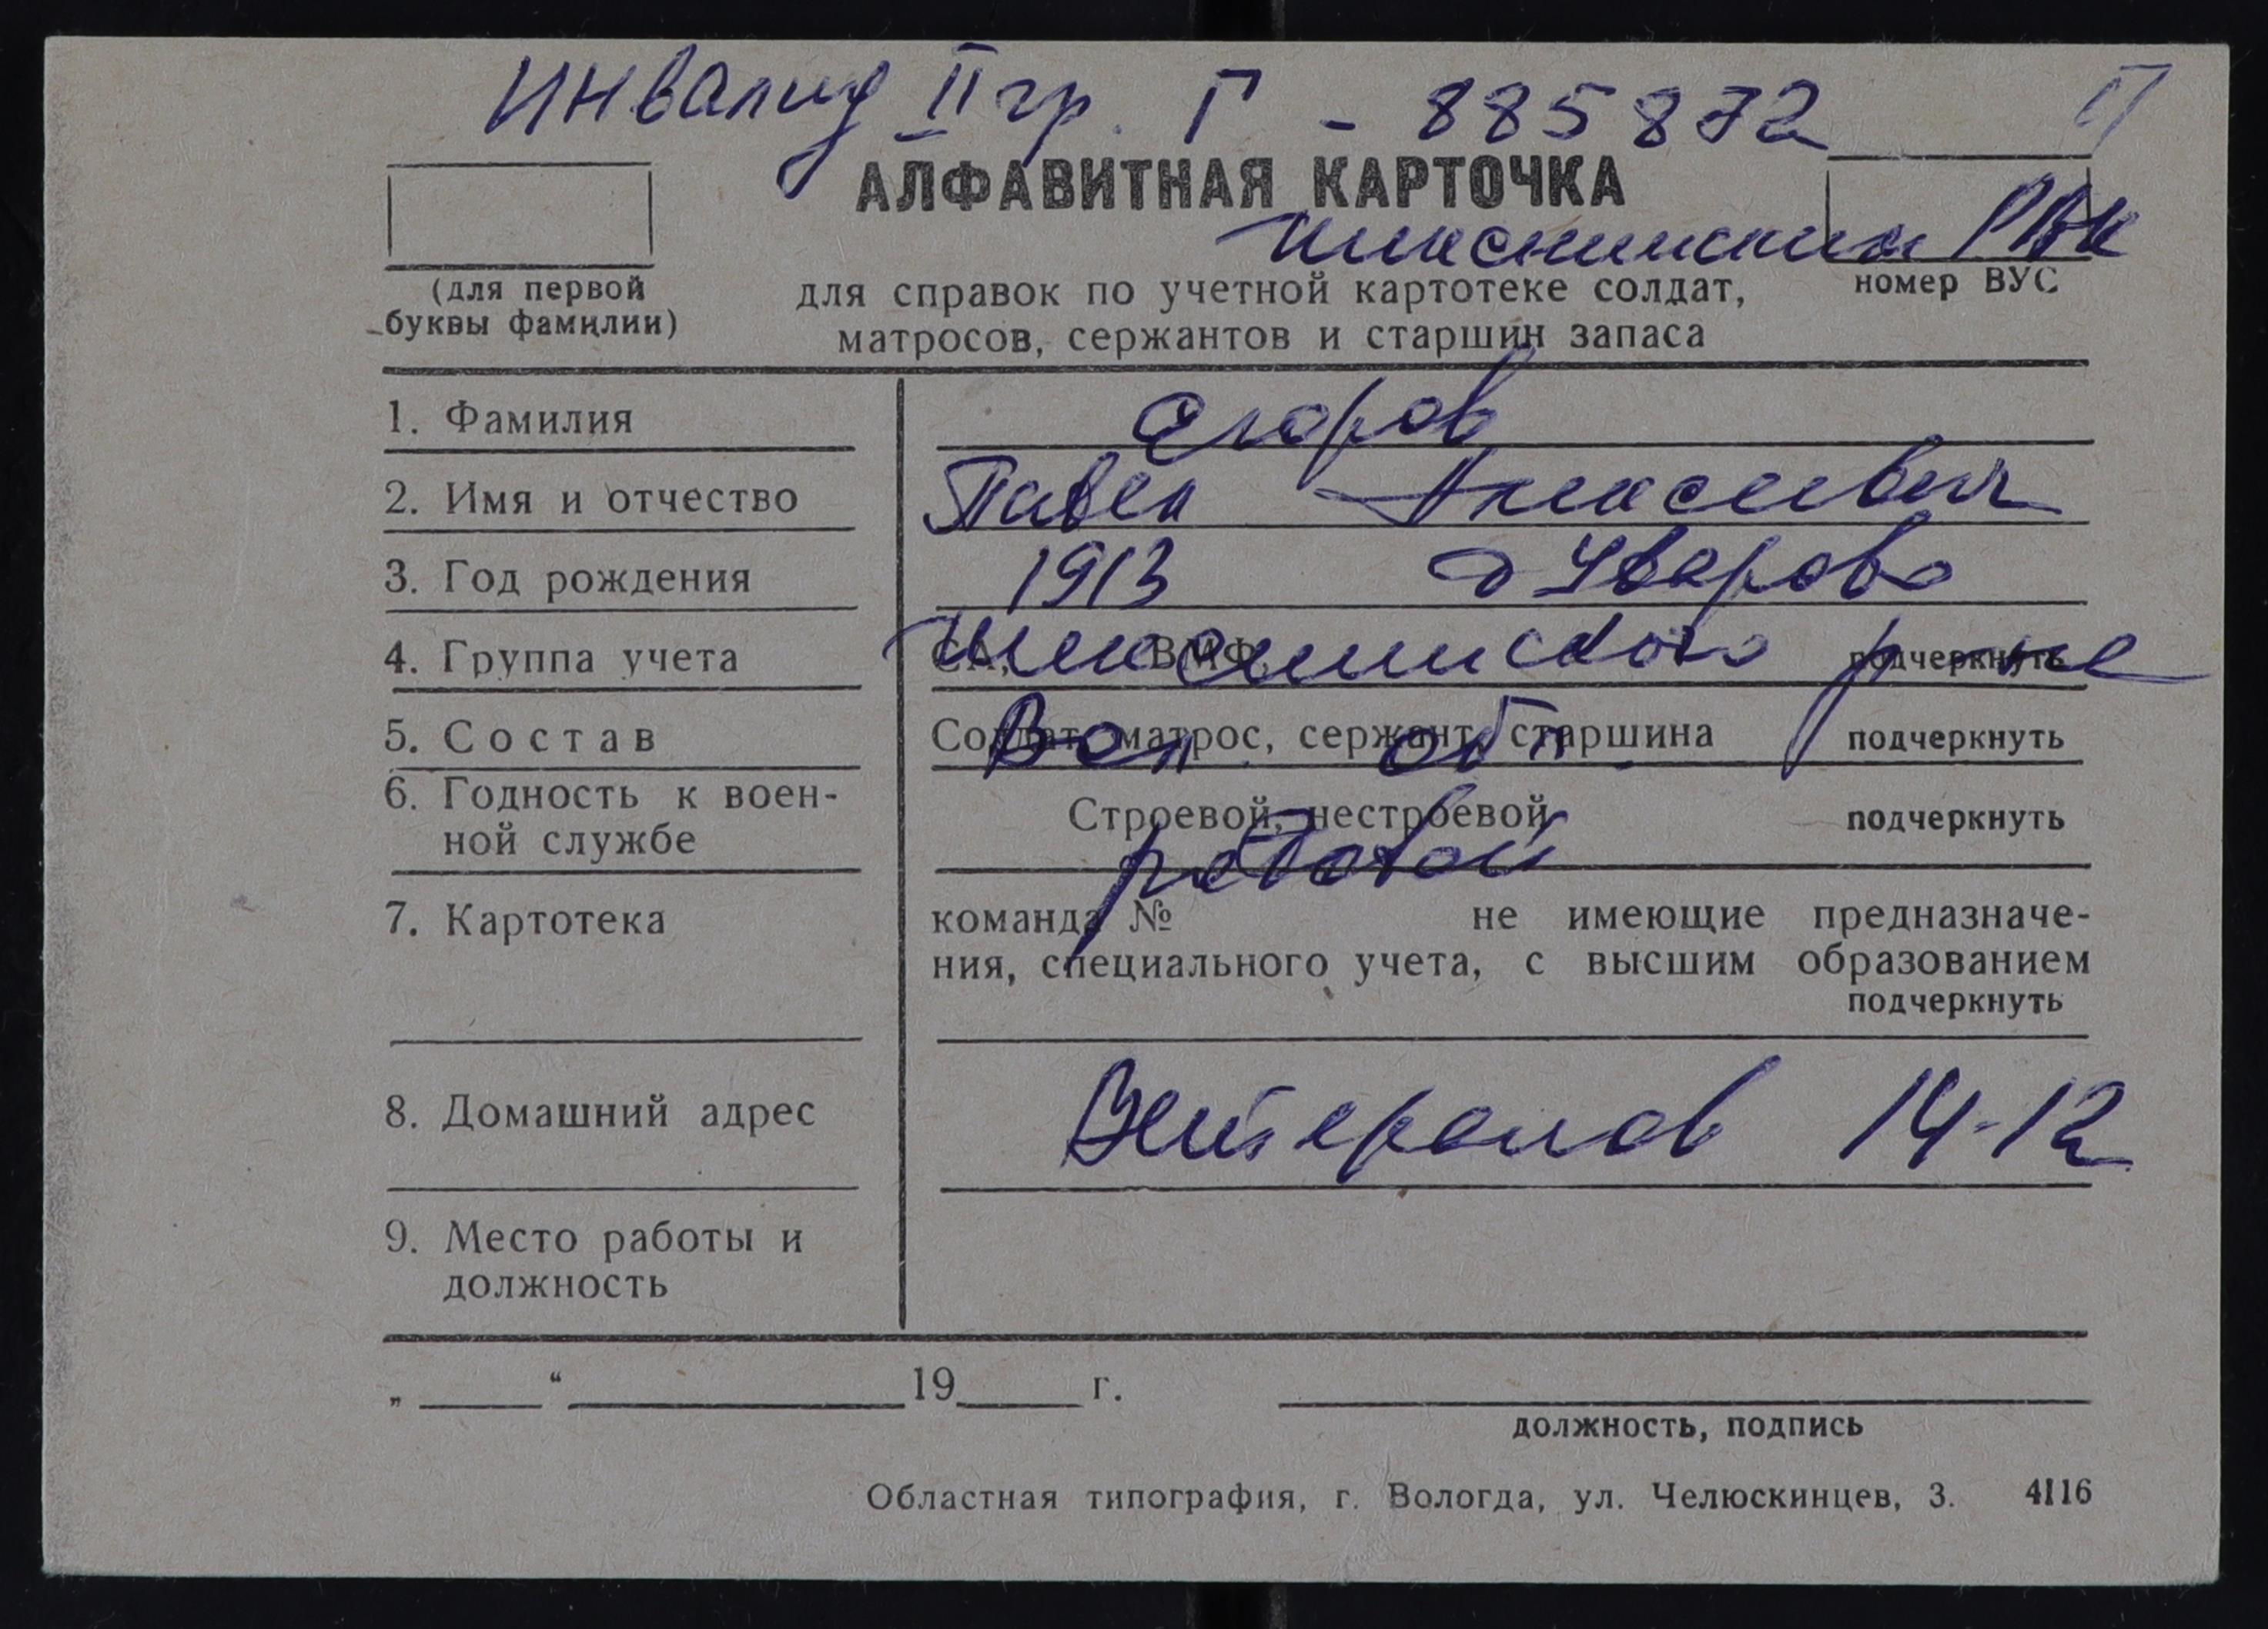 Инвалид II гр. Г - 885872
АЛФАВИТНАЯ КАРТОЧКА
Шекснинский РВК
(для первой буквы фамилии)
для справок по учетной картотеке солдат,
матросов, сержантов и старшин запаса
номер ВУС
1. Фамилия Егоров
2. Имя и отчество Павел Алексеевич
3. Год рождения 1913 д Уварово
4. Группа учета СА, ВМФ, подчеркнуть
Шекснинского р-на
5. Состав Солдат, матрос, сержант, старшина подчеркнуть
6. Годность к воен-
ной службе Строевой, нестроевой подчеркнуть
рядовой
7. Картотека команда № не имеющие предназначе-
ния, специального учета, с высшим образованием
подчеркнуть
8. Домашний адрес Ветеранов 14-12
9. Место работы и
должность
„ “ 19 г.
должность, подпись
Областная типография, г. Вологда, ул. Челюскинцев, 3. 4116